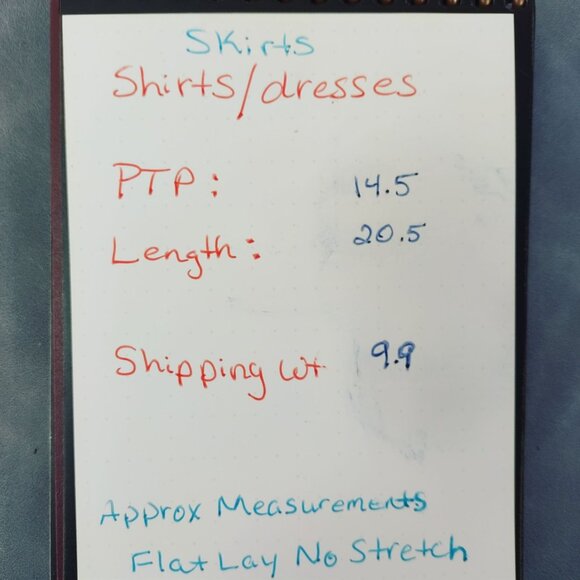 SKirts
Shirts/dresses
PTP: 14.5
Length: 20.5
Shipping Wt 9.9
Approx Measurements
Flat Lay No Stretch